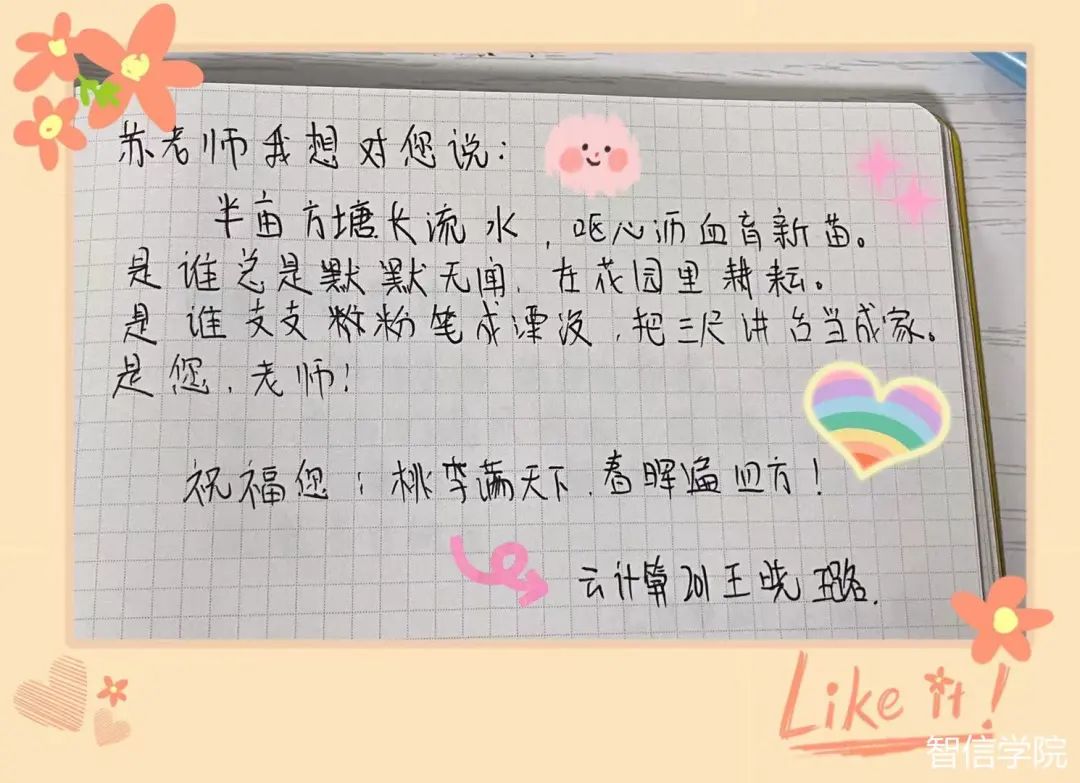 苏老师我想对您说：
半亩方塘长流水，呕心沥血育新苗。
是谁总是默默无闻，在花园里耕耘。
是谁支支粉笔成漂没，把三尺讲台当成家。
是您，老师！
祝福您：桃李满天下，春晖遍四方！
云计算201王晓璐.
Like it!
智信学院